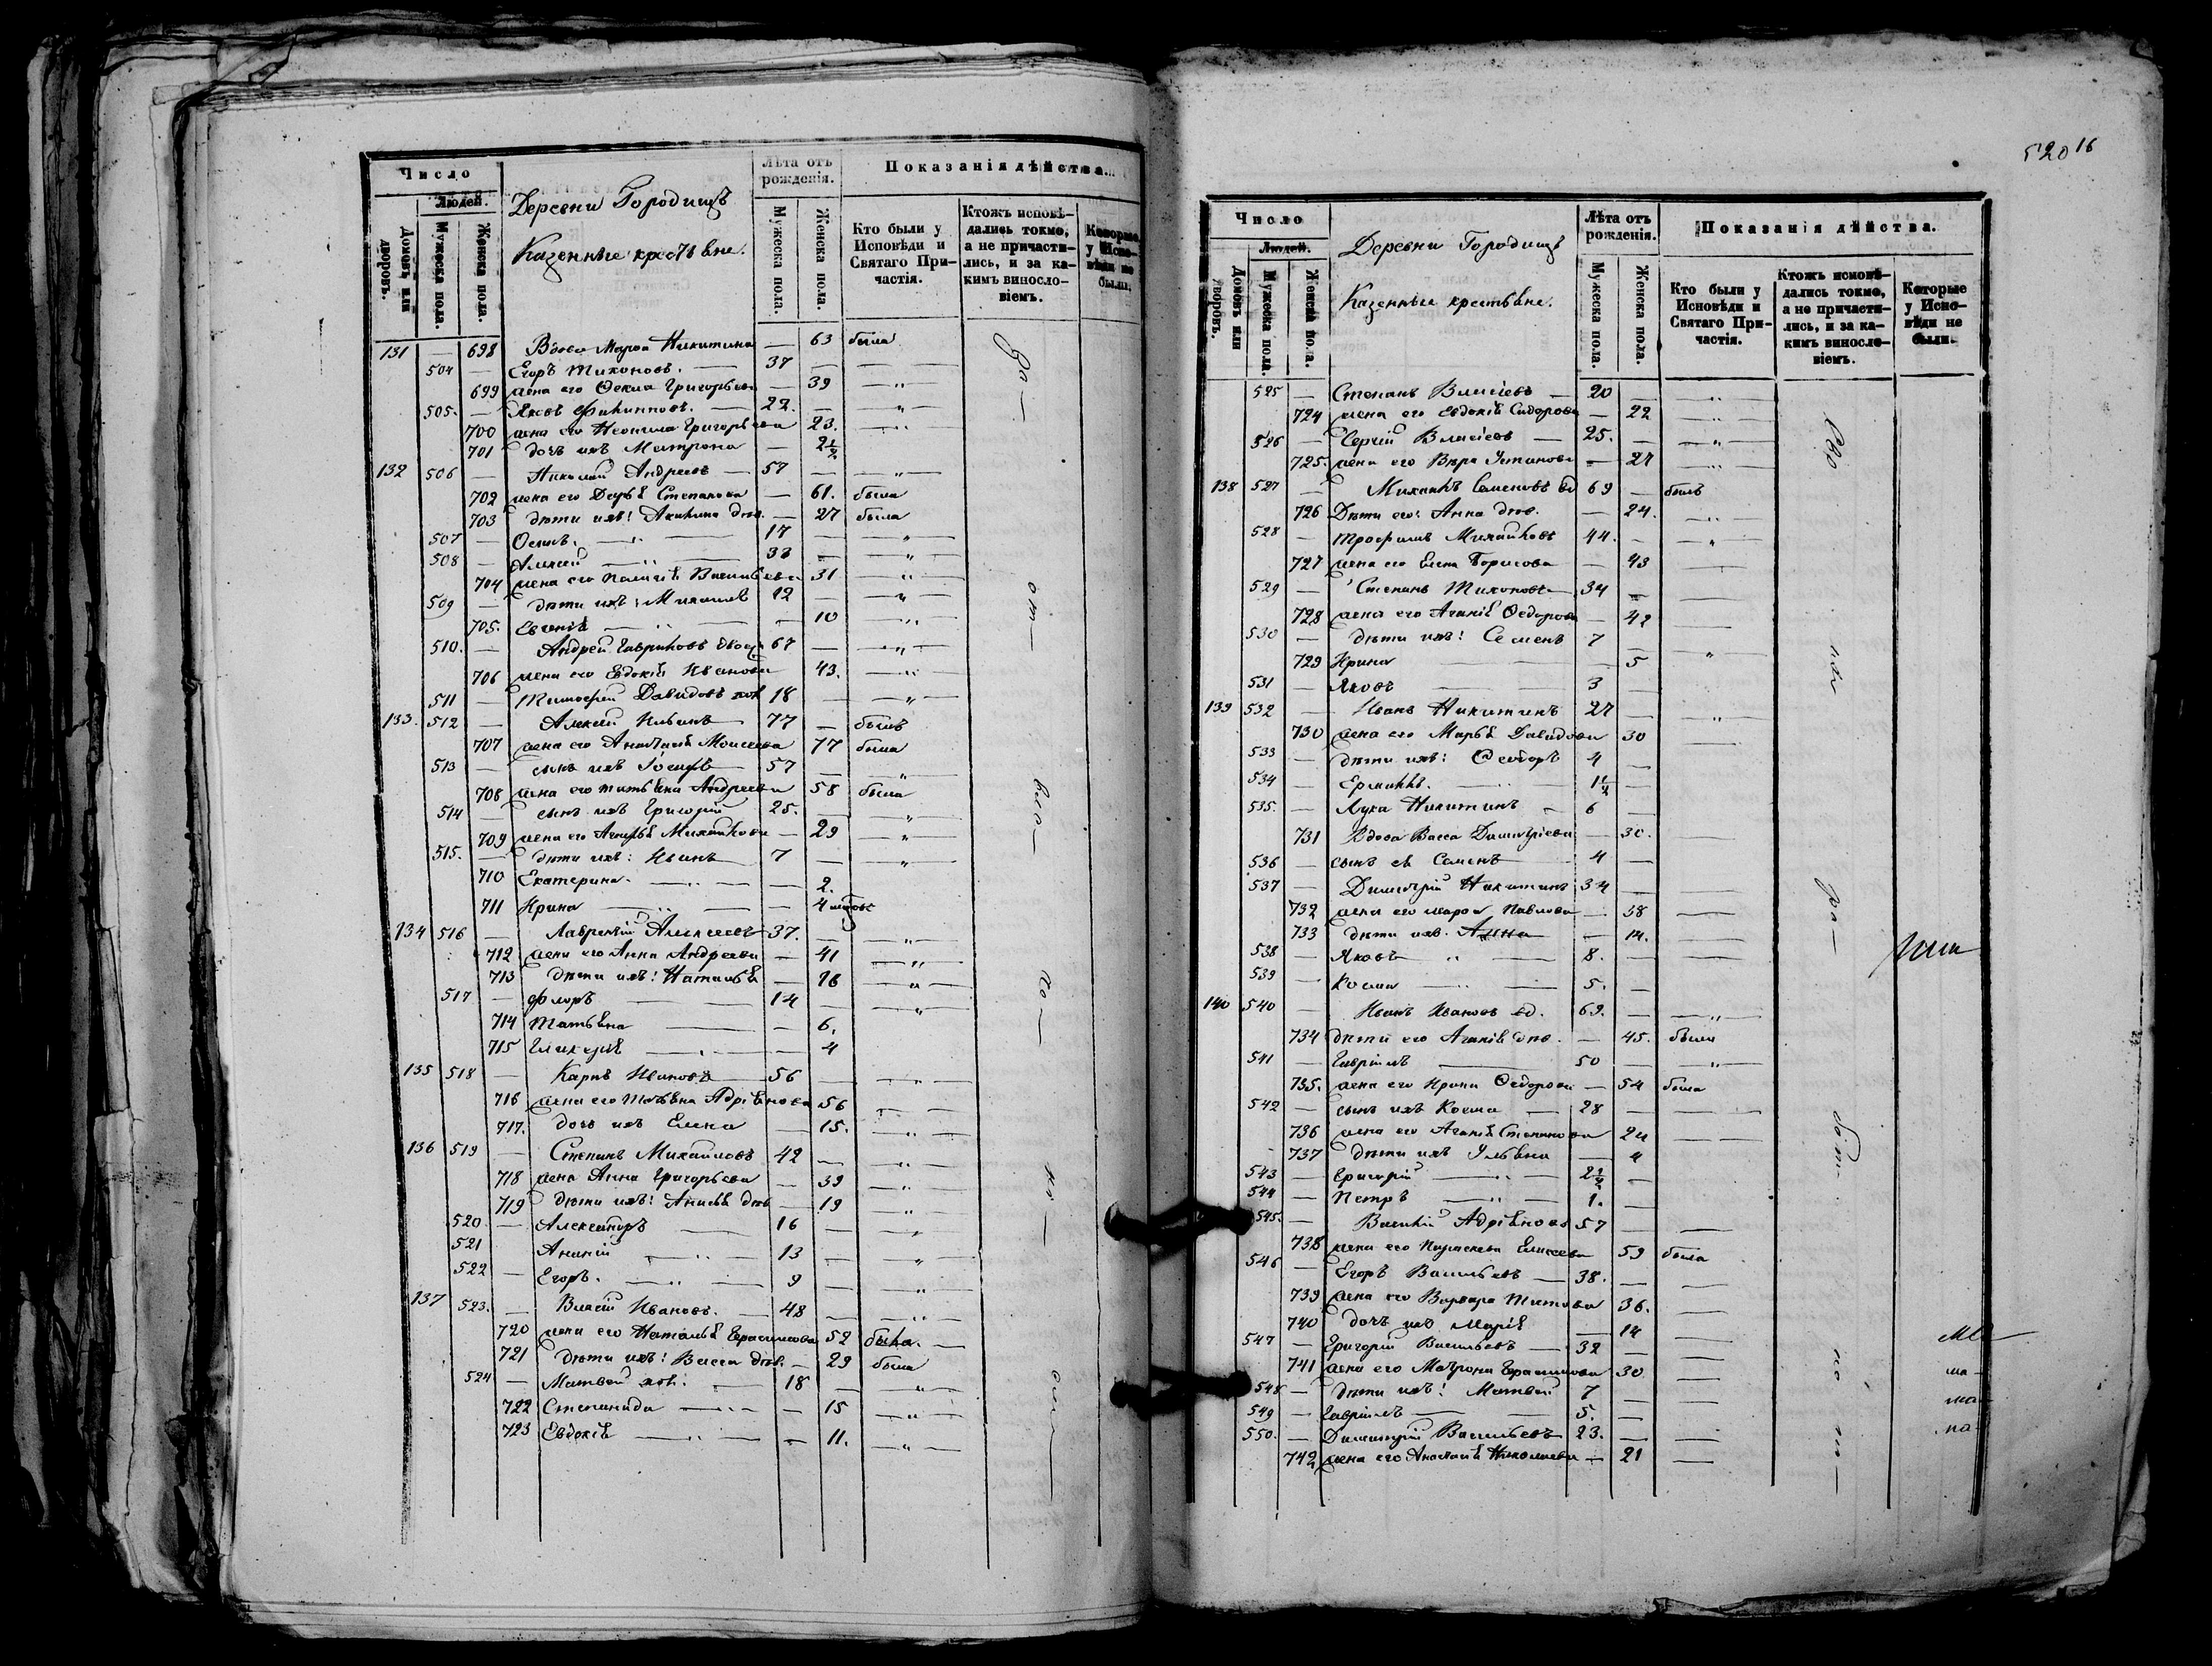 Число
Людей.
Домовъ или дворовъ.
Мужеска пола.
Женска пола.
Деревни Городищъ
Казенные крестьяне.
Лѣта отъ рожденія.
Мужеска пола.
Женска пола.
Показанія дѣйства.
Кто были у Исповѣди и Святаго Причастія.
Ктожъ исповѣдались токмо, а не причастились, и за какимъ винословіемъ.
Которые у Исповѣди не были.
131 — 698 Вдова Марѳа Никитина — 63 была
504 — Егоръ Тихоновъ. — 37 —
699 жена его Ѳекла Григорьева — 39 — „ —
505. — Яковъ Филипповъ. — 22. — „ —
700 жена его Неонила Григорьева 23. — „ —
701 дочь ихъ Матрона — 2½
132 506 — Николай Андреевъ — 57 — „ —
702 жена его Дарья Степанова — 61. была
703 дѣти ихъ: Акилина дѣв. — 27 была
507 — Осипъ. — „ — 17 — „ —
508 — Алексей — „ — 33 — „ —
704 жена его Пелагія Васильева 31 — „ —
509 — дѣти ихъ: Михаилъ 12 — „ —
705. Евгенія — „ — 10 — „ —
510. — Андрей Гавриловъ 67 — „ —
706 жена его Евдокія Иванова 43. — „ —
511 — Тимофей Давидовъ хол 18 — „ —
133. 512 — Алексей 77 — былъ
707 жена его Анастасія Моисеева 77 была
513 — сынъ ихъ Іосифъ — 57 — „ —
708 жена его Татьяна Андреева 58 была
514 — сынъ ихъ Григорій 25. — „ —
709 жена его Михайлова — 29 — „ —
515. — дѣти ихъ: Иванъ 7 — „ —
710 Екатерина. — „ — 2.
711 Ирина — „ — 4
134 516 — Лаврентій Алексеевъ 37. — „ —
712 жена его Анна Андреева — 41 — „ —
713 дѣти ихъ: Наталья — 16 — „ —
517 — Флоръ — 14 — „ —
714 Татьяна — 6.
715 Гликерія — 4
135 518 — Карпъ Ивановъ — 56 — „ —
716 жена его Татьяна Адріянова 56 — „ —
717. дочь ихъ Елена — 15. — „ —
136 519 — Степанъ Михайловъ 42 — „ —
718 жена Анна Григорьева — 39 — „ —
719 дѣти ихъ: Анисья дѣв — 19 — „ —
520 — Александръ — 16 — „ —
521 Ананій — „ — 13 — „ —
522 — Егоръ. — „ — 9 — „ —
137 523. — Власій Ивановъ. — 48 — „ —
720 жена его Наталья Герасимова 52 была. —
721 дѣти ихъ: Васса дѣв. — 29 была
524 — Матвей хол. — 18 — „ —
722 Степанида — „ — 15 — „ —
723 Евдокія — „ — 11. — „ —
520 16
Число
Людей.
Домовъ или дворовъ.
Мужеска пола.
Женска пола.
Деревни Городищъ
Казенные крестьяне.
Лѣта отъ рожденія.
Мужеска пола.
Женска пола.
Показанія дѣйства.
Кто были у Исповѣди и Святаго Причастія.
Ктожъ исповѣдались токмо, а не причастились, и за какимъ винословіемъ.
Которые у Исповѣди не были.
525 — Степанъ Власіевъ — 20 — „ —
724 жена его Евдокія Сидорова — 22 — „ —
526 — Сергій Власіевъ — 25. — „ —
725. жена его Вѣра Устинова — 27 — „ —
138 527 — Михаилъ Семеновъ вд 69 — былъ
726 Дѣти его: Анна дѣв. — 24. — „ —
528 — Трофимъ Михайловъ 44. — „ —
727 жена его Елена Борисова — 43 —
529 — Степанъ Тихоновъ — 34 —
728 жена его Агапія Ѳедорова — 42 —
530 — дѣти ихъ: Семенъ 7 —
729 Ирина — 5 — „ —
531 — Яковъ — 3 —
139 532 — Иванъ Никитинъ 27 — „ —
730 жена его Марья Давидова 30 —
533 — дѣти ихъ: Ѳеодоръ 4 —
534 — Ермилъ. — „ — 1½ —
535. — Лука Никитинъ — 6 —
731 Вдова Васса Димитріева — 30.
536 — сынъ ея Семенъ — 4 —
537 — Димитрій Никитинъ 34 —
732 жена его Марѳа Павлова — 38 —
733 дѣти ихъ. Анна — 14. —
538 — Яковъ „ — 8. —
539 — Косма — „ — 5. —
140 540 — Иванъ Ивановъ вд. 69. — „ —
734 дѣти его Агапія дѣв. — 45. была
541 — Гавріилъ — 50 — „ —
735. жена его Ирина Ѳедорова — 54 была
542 — сынъ ихъ Косма — 28 —
736 жена его Агапія Степанова 24 —
737 дѣти ихъ Ульяна — 4
543 — Григорій — „ — 2½ —
544 — Петръ — „ — 1. —
545. — Василій Адріяновъ 57 —
738 жена его Параскева Елисеева 59 была
546 — Егоръ Васильевъ — 38. —
739 жена его Варвара Титова 36. —
740 дочь ихъ Марія — 14 —
547 — Григорій Васильевъ — 32 —
741 жена его Матрона Герасимова 30 —
548 — дѣти ихъ: Матвей 7 —
549 — Гавріилъ — 5. —
550. — Димитрій Васильевъ 23. —
742 жена его Анастасія Николаева — 21 —